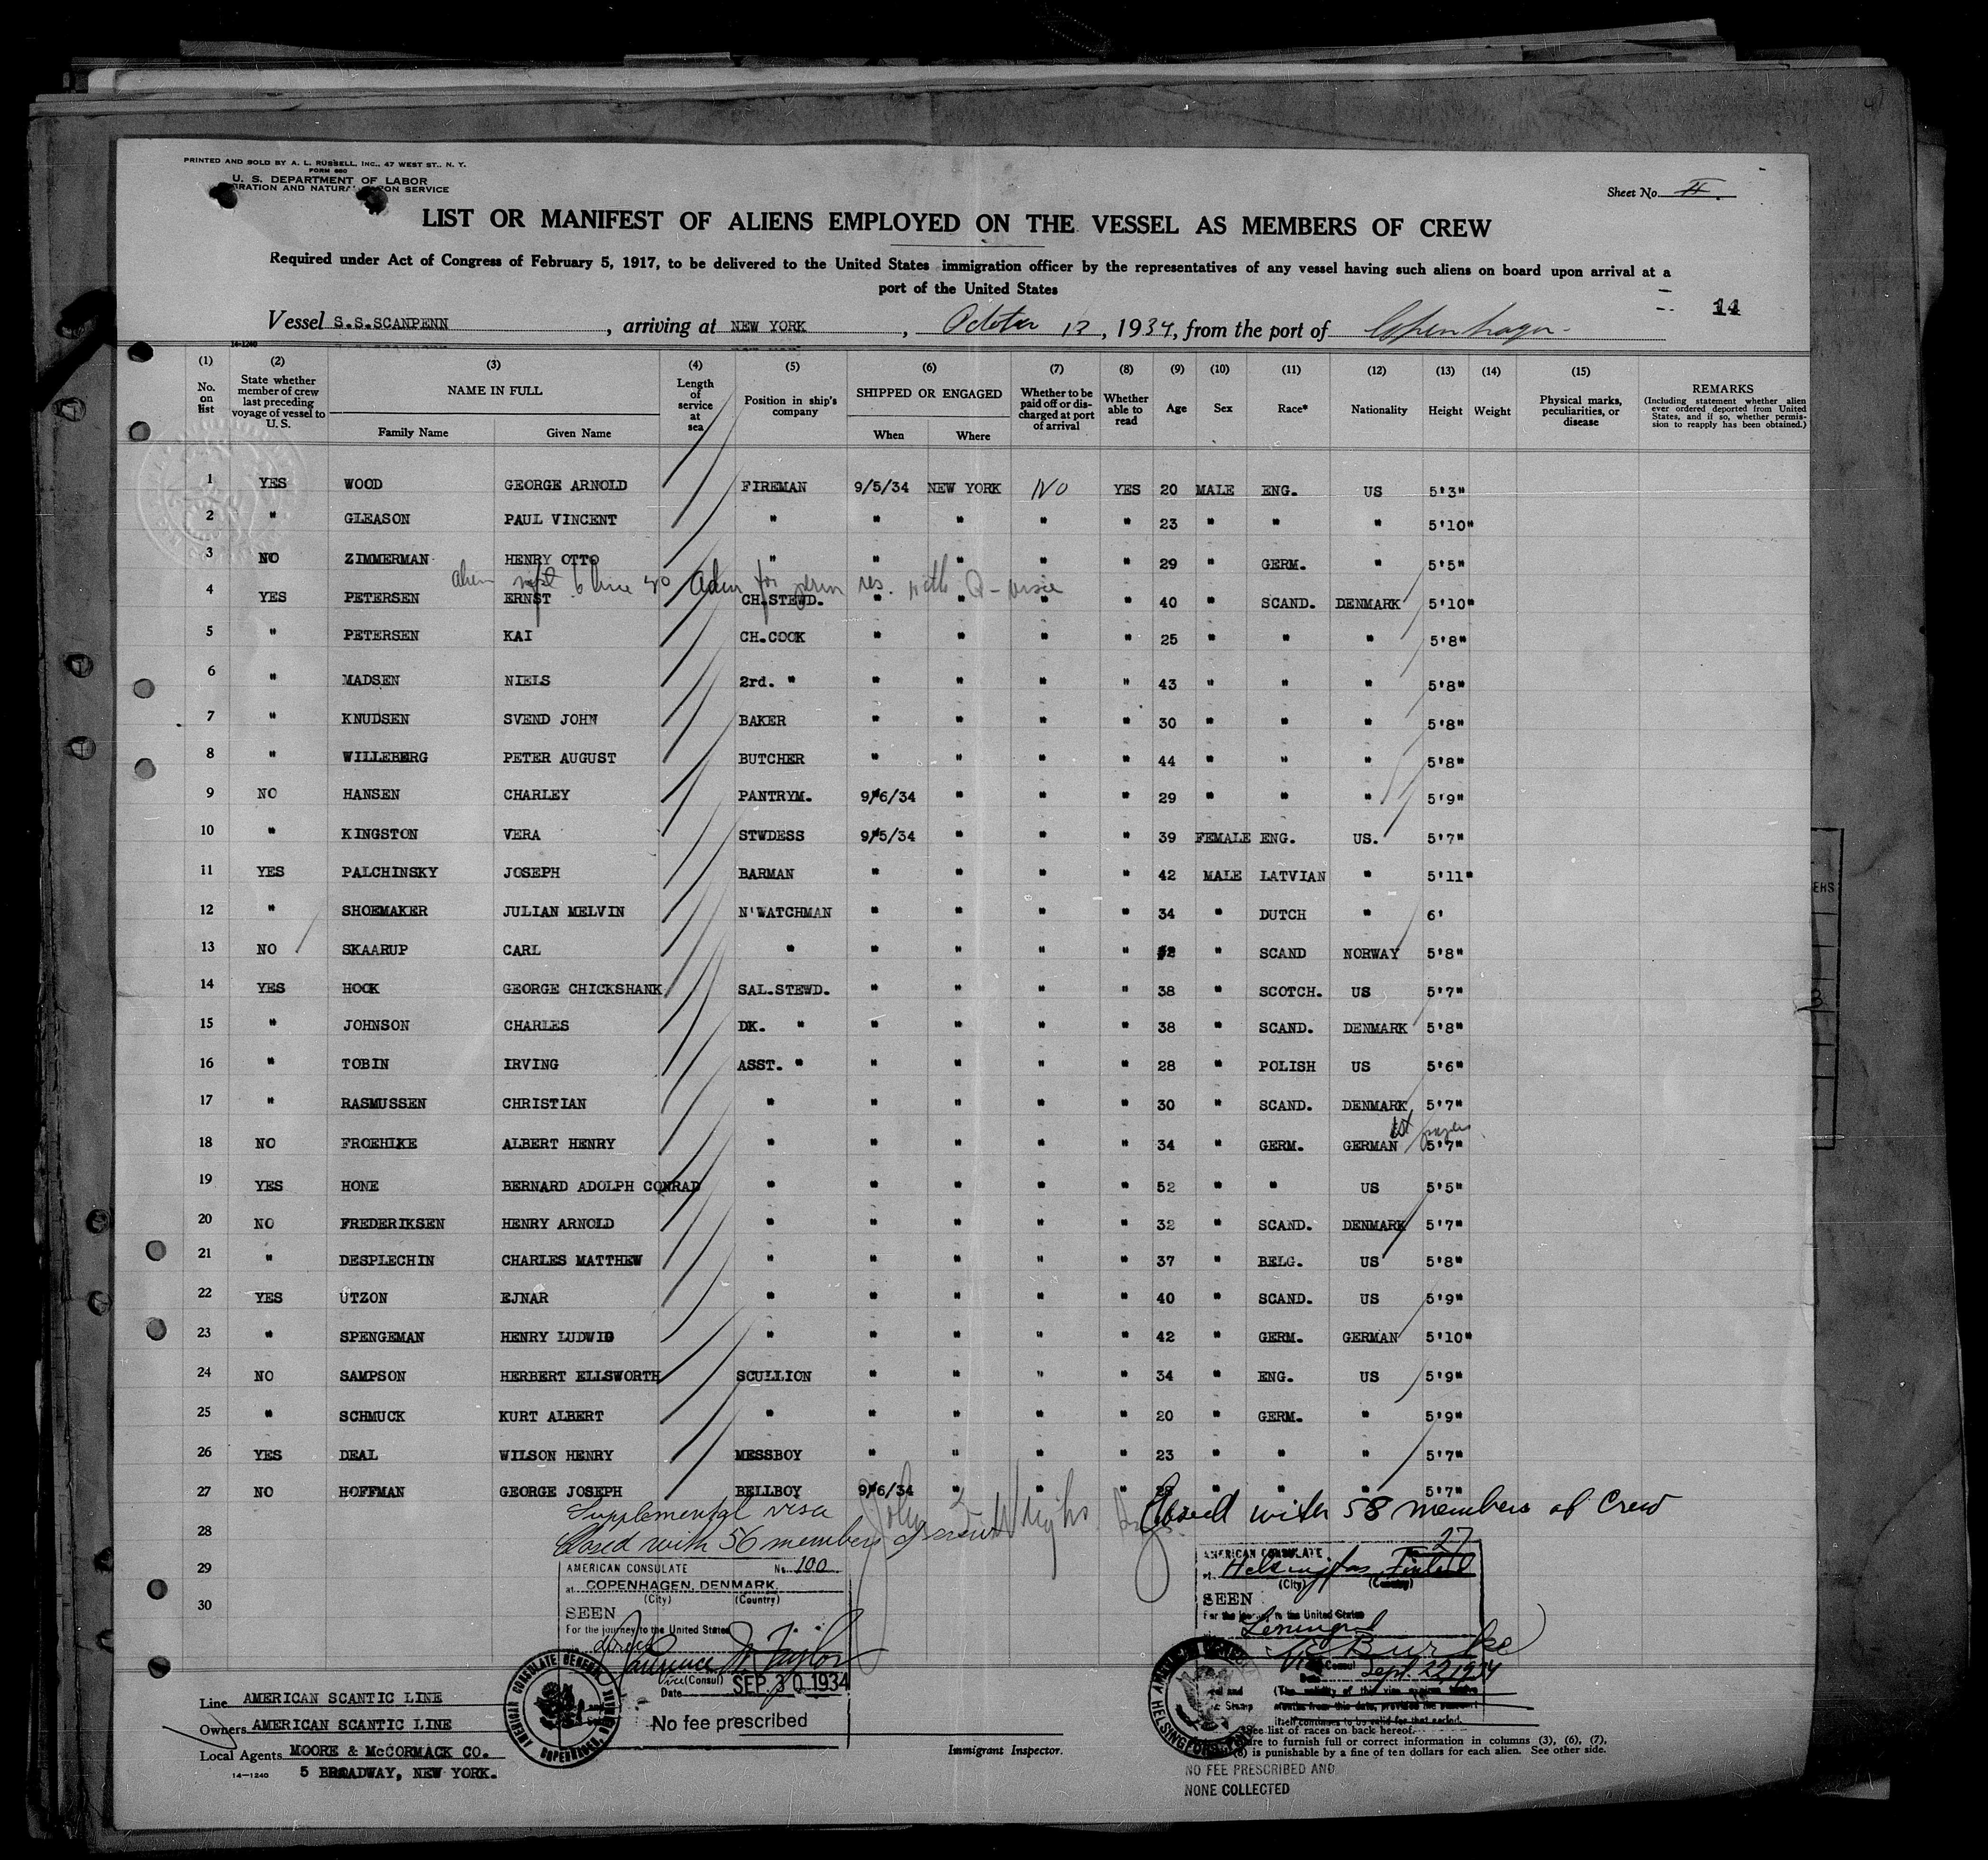 PRINTED AND SOLD BY A. L. RUSSELL, INC., 47 WEST ST., N. Y.
FORM 680
U. S. DEPARTMENT OF LABOR
GRATION AND NATURA ON SERVICE
Sheet No. II.
LIST OR MANIFEST OF ALIENS EMPLOYED ON THE VESSEL AS MEMBERS OF CREW
Required under Act of Congress of February 5, 1917, to be delivered to the United States immigration officer by the representatives of any vessel having such aliens on board upon arrival at a
port of the United States
14
Vessel S.S.SCANPENN, arriving at NEW YORK, October 12, 1934, from the port of Copenhagen
14-1240
(1) No. on list (2) State whether member of crew last preceding voyage of vessel to U. S. (3) NAME IN FULL Family Name Given Name (4) Length of service at sea (5) Position in ship's company (6) SHIPPED OR ENGAGED When Where (7) Whether to be paid off or discharged at port of arrival (8) Whether able to read (9) Age (10) Sex (11) Race* (12) Nationality (13) Height (14) Weight (15) Physical marks, peculiarities, or disease REMARKS (Including statement whether alien ever ordered deported from United States, and if so, whether permission to reapply has been obtained.)
1 YES WOOD GEORGE ARNOLD FIREMAN 9/5/34 NEW YORK NO YES 20 MALE ENG. US 5'3"
2 " GLEASON PAUL VINCENT " " " " " 23 " " " 5'10"
3 NO ZIMMERMAN HENRY OTTO " " " " " 29 " GERM. " 5'5"
alien line 30 Adm for perm res. with Q-visa
4 YES PETERSEN ERNST CH.STEWD. " " " " 40 " SCAND. DENMARK 5'10"
5 " PETERSEN KAI CH.COOK " " " " 25 " " " 5'8"
6 " MADSEN NIELS 2rd. " " " " " 43 " " " 5'8"
7 " KNUDSEN SVEND JOHN BAKER " " " " 30 " " " 5'8"
8 " WILLEBERG PETER AUGUST BUTCHER " " " " 44 " " " 5'8"
9 NO HANSEN CHARLEY PANTRYM. 9/6/34 " " " 29 " " " 5'9"
10 " KINGSTON VERA STWDESS 9/5/34 " " " 39 FEMALE ENG. US. 5'7"
11 YES PALCHINSKY JOSEPH BARMAN " " " " 42 MALE LATVIAN " 5'11"
12 " SHOEMAKER JULIAN MELVIN N'WATCHMAN " " " " 34 " DUTCH " 6'
13 NO SKAARUP CARL " " " " " " SCAND NORWAY 5'8"
14 YES HOCK GEORGE CHICKSHANK SAL.STEWD. " " " " 38 " SCOTCH. US 5'7"
15 " JOHNSON CHARLES DK. " " " " " 38 " SCAND. DENMARK 5'8"
16 " TOBIN IRVING ASST. " " " " " 28 " POLISH US 5'6"
17 " RASMUSSEN CHRISTIAN " " " " " 30 " SCAND. DENMARK 5'7"
18 NO FROEHIKE ALBERT HENRY " " " " " 34 " GERM. GERMAN 5'7"
19 YES HONE BERNARD ADOLPH CONRAD " " " " " 52 " " US 5'5"
20 NO FREDERIKSEN HENRY ARNOLD " " " " " 32 " SCAND. DENMARK 5'7"
21 " DESPLECHIN CHARLES MATTHEW " " " " " 37 " BELG. US 5'8"
22 YES UTZON EJNAR " " " " " 40 " SCAND. US 5'9"
23 " SPENGEMAN HENRY LUDWIG " " " " " 42 " GERM. GERMAN 5'10"
24 NO SAMPSON HERBERT ELLSWORTH SCULLION " " " " 34 " ENG. US 5'9"
25 " SCHMUCK KURT ALBERT " " " " " 20 " GERM. " 5'9"
26 YES DEAL WILSON HENRY MESSBOY " " " " 23 " " " 5'7"
27 NO HOFFMAN GEORGE JOSEPH BELLBOY 9/6/34 " " " " " " 5'7"
Supplemental visa
Closed with 58 members of Crew
28 Closed with 56 members of crew
27
29
30
AMERICAN CONSULATE No. 100
at COPENHAGEN, DENMARK.
(City) (Country)
SEEN
For the journey to the United States
direct
Clarence Taylor
Vice (Consul)
Date SEP 30 1934
No fee prescribed
AMERICAN CONSULATE GENERAL COPENHAGEN
AMERICAN CONSULATE
at Helsingfors Finland
(City) (Country)
SEEN
For the journey to the United States
Leningrad
Burke
Vice Consul
Date Sept. 22, 1934
(The validity of this visa expires twelve
months from this date, provided the passport
itself continues to be valid for that period.
Line AMERICAN SCANTIC LINE
Owners AMERICAN SCANTIC LINE
Local Agents MOORE & McCORMACK CO.
14—1240 5 BROADWAY, NEW YORK.
Immigrant Inspector.
See list of races on back hereof.
re to furnish full or correct information in columns (3), (6), (7),
(8) is punishable by a fine of ten dollars for each alien. See other side.
NO FEE PRESCRIBED AND
NONE COLLECTED